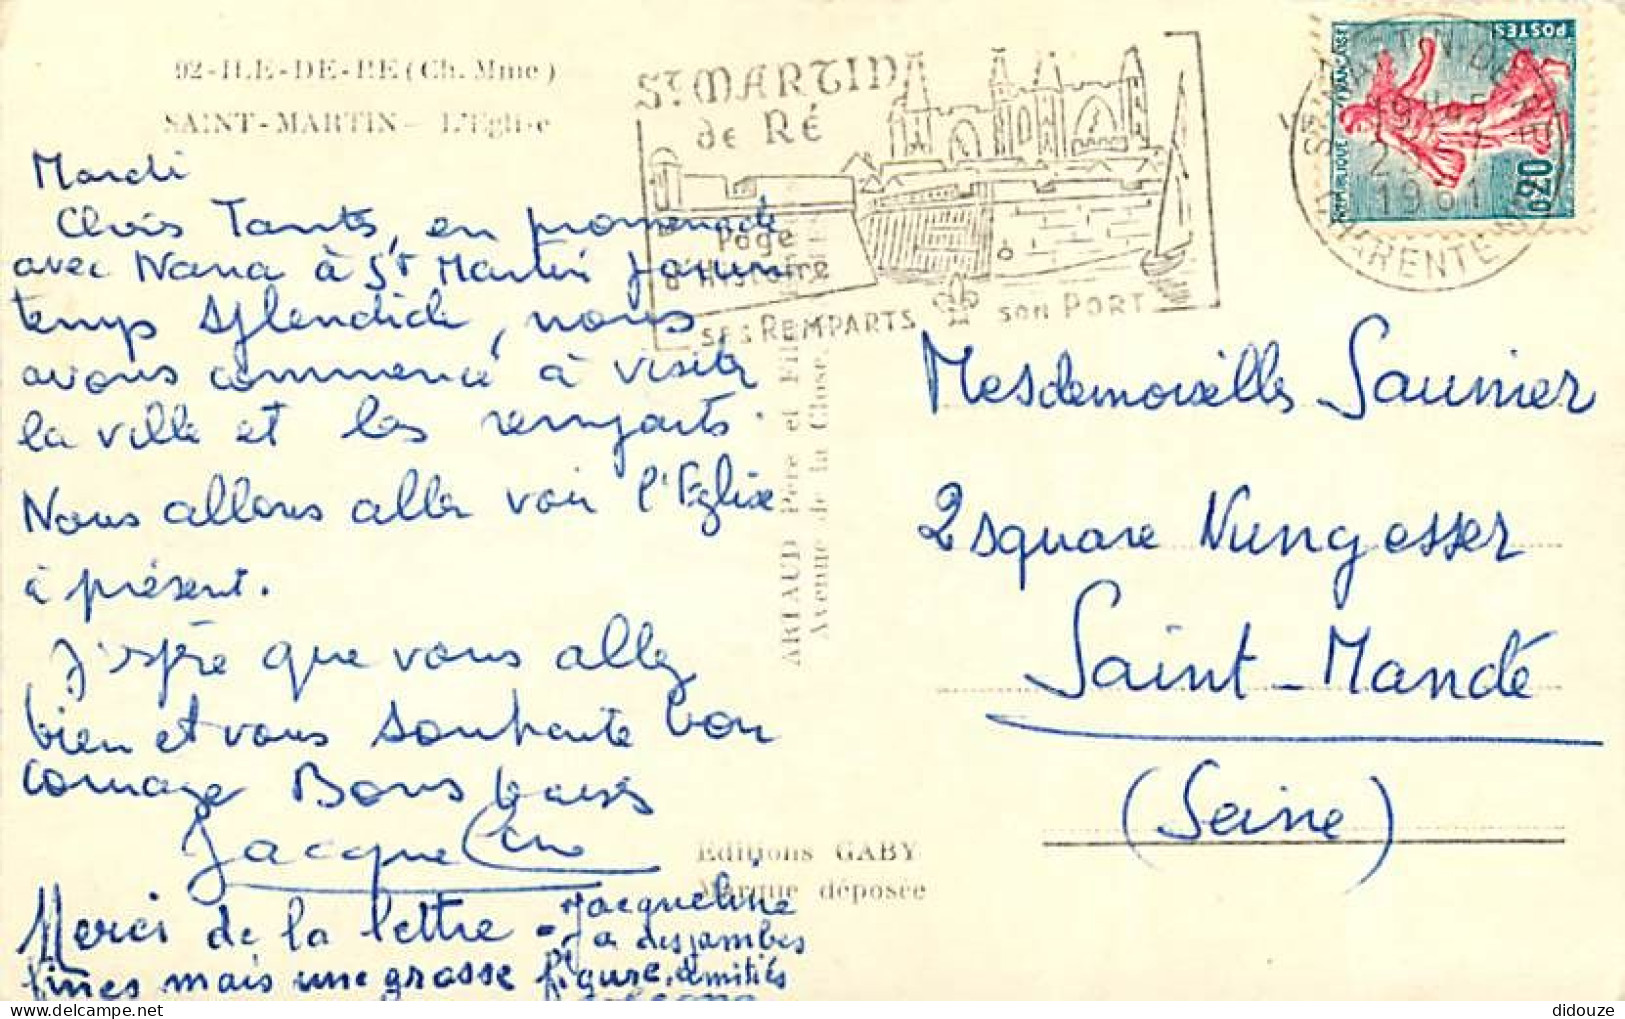 92-ILE-DE-RE (Ch. Mme)
SAINT-MARTIN - L'Eglise
St MARTIN
de RÉ
Page
d'Histoire
SES REMPARTS son PORT
POSTES
REPUBLIQUE FRANÇAISE
0,20
19H45
1961
CHARENTE
Mardi
Chois Tants, en promenade
avec Nana à St Martin
temps splendide, nous
avons commencé à visiter
la ville et les remparts.
Nous allons aller voir l'Eglise
à présent.
J'espère que vous allez
bien et vous souhaite bon
courage Bons baisers
Jacqueline
Merci de la lettre - Jacqueline
a des jambes
fines mais une grosse figure. Amitiés
ARTAUD Père et Fils
Avenue de la Close
Editions GABY
Marque déposée
Mesdemoiselles Saunier
2 square Nungesser
Saint-Mandé
(Seine)
didouze